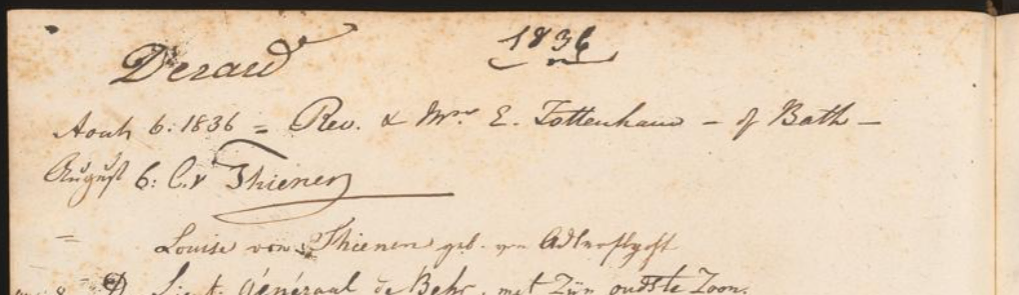 1836
Aout 6. 1836 = Rev. & Mrs. E. Tottenham - of Bath -
August 6: C. v Thienen
= Louise von Thienen geb. von
Lieut. Général de Behr, met Zijn oudste Zoon.